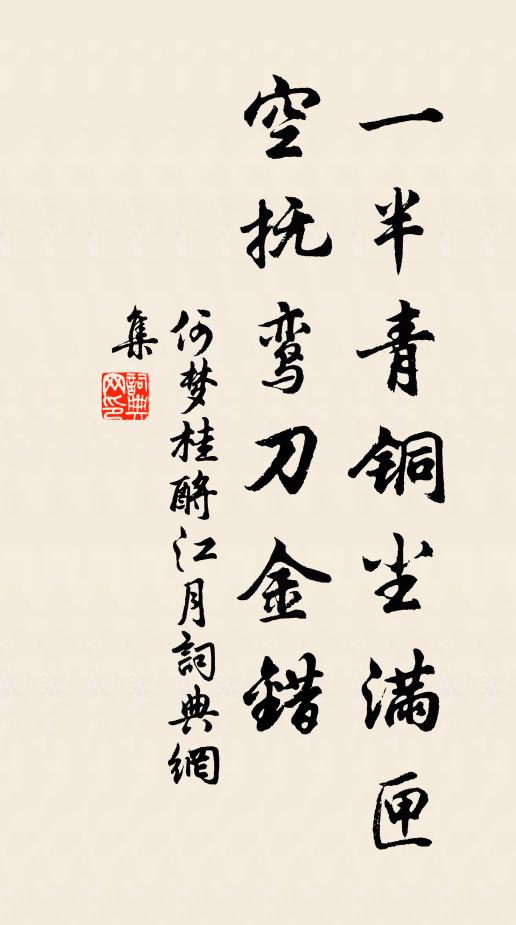 一半青铜尘满匣
空抚鸾刀金错
何梦桂酹江月詞典網
集
詞典网印